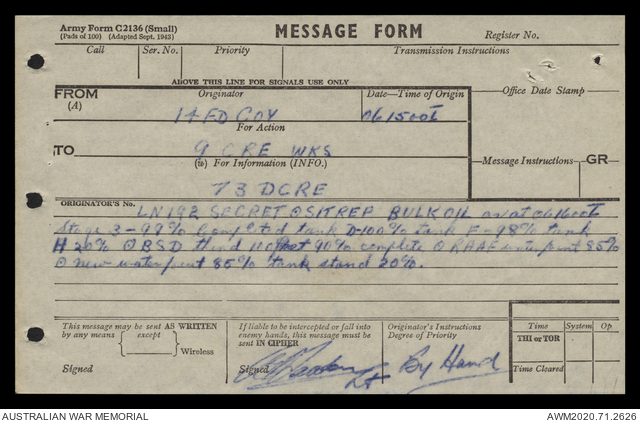 Army Form C2136 (Small)
(Pads of 100) (Adapted Sept. 1943)
MESSAGE FORM
Register No.
Call Ser. No. Priority Transmission Instructions
ABOVE THIS LINE FOR SIGNALS USE ONLY
FROM
(A)
Originator
Date—Time of Origin
Office Date Stamp
14 FD COY 061500I
For Action
TO
9 CRE WKS
(W) For Information (INFO.)
Message Instructions GR
73 DCRE
ORIGINATOR'S No.
LN192 SECRET O SITREP BULK OIL as at 061600I
Stage 3 - 99% Completed tank D-100% tank F-98% tank
H 20% O BSD 90% complete O RAAF waterpoint 85%
O new waterpoint 85% tank stand 20%.
This message may be sent AS WRITTEN
by any means except
Wireless
Signed
If liable to be intercepted or fall into
enemy hands, this message must be
sent IN CIPHER
Signed
Lt
Originator's Instructions
Degree of Priority
By Hand
Time System Op
THI or TOR
Time Cleared
AUSTRALIAN WAR MEMORIAL
AWM2020.71.2626